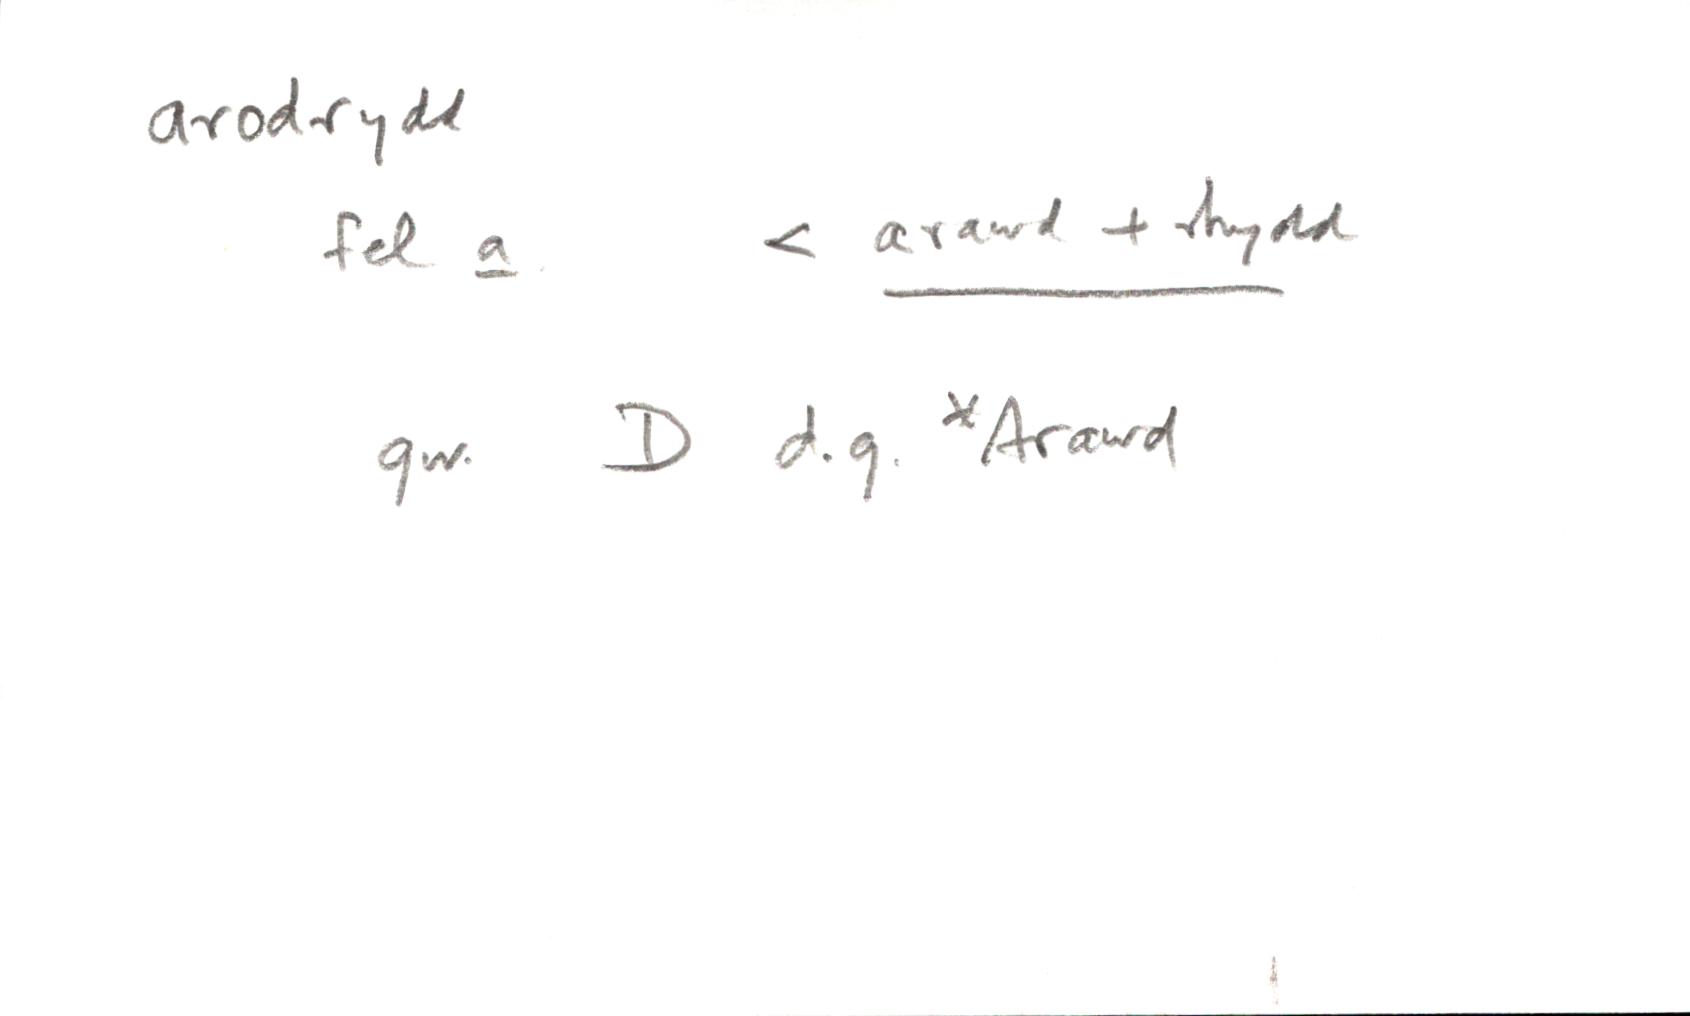 arodrydd
fel a. < arawd + rhydd
gw. D d.g. *Arawd